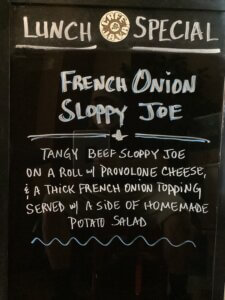 LUNCH SPECIAL
FRENCH ONION
SLOPPY JOE
TANGY BEEF SLOPPY JOE
ON A ROLL w/ PROVOLONE CHEESE,
& A THICK FRENCH ONION TOPPING
SERVED w/ A SIDE OF HOMEMADE
POTATO SALAD